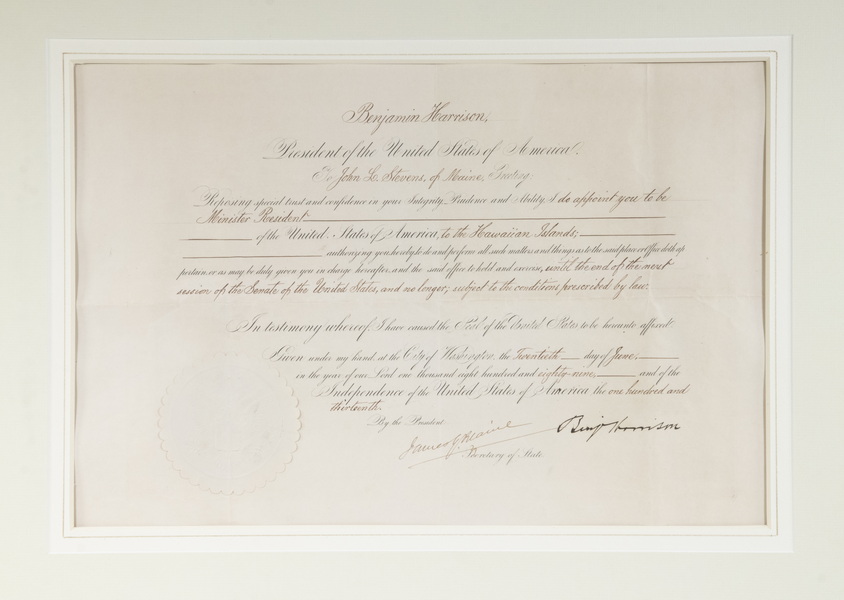 Benjamin Harrison,
President of the United States of America.
To John L. Stevens, of Maine, Greeting
Reposing special trust and confidence in your Integrity, Prudence and Ability, I do appoint you to be
Minister Resident
of the United States of America, to the Hawaiian Islands;
authorizing you, hereby to do and perform all such matters and things as to the said place or Office doth ap
pertain, or as may be duly given you in charge hereafter, and the said office to hold and exercise, until the end of the next
session of the Senate of the United States, and no longer; subject to the conditions prescribed by law.
In testimony whereof, I have caused the Seal of the United States to be hereunto affixed.
Given under my hand, at the City of Washington, the Twentieth day of June,
in the year of our Lord one thousand eight hundred and eighty-nine, and of the
Independence of the United States of America the one hundred and
thirteenth.
By the President
Benj Harrison
James G. Blaine
Secretary of State.